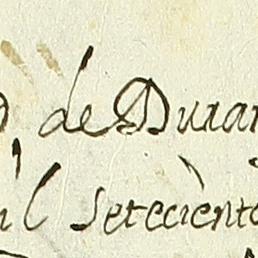 de Duran
il seteciento